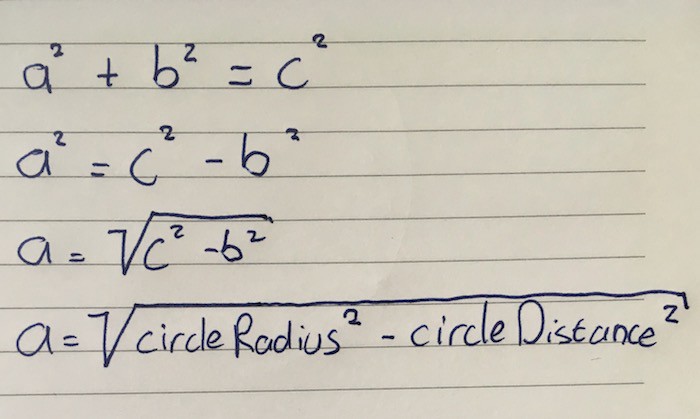 a² + b² = c²
a² = c² - b²
a = √(c² - b²)
a = √(circleRadius² - circleDistance²)